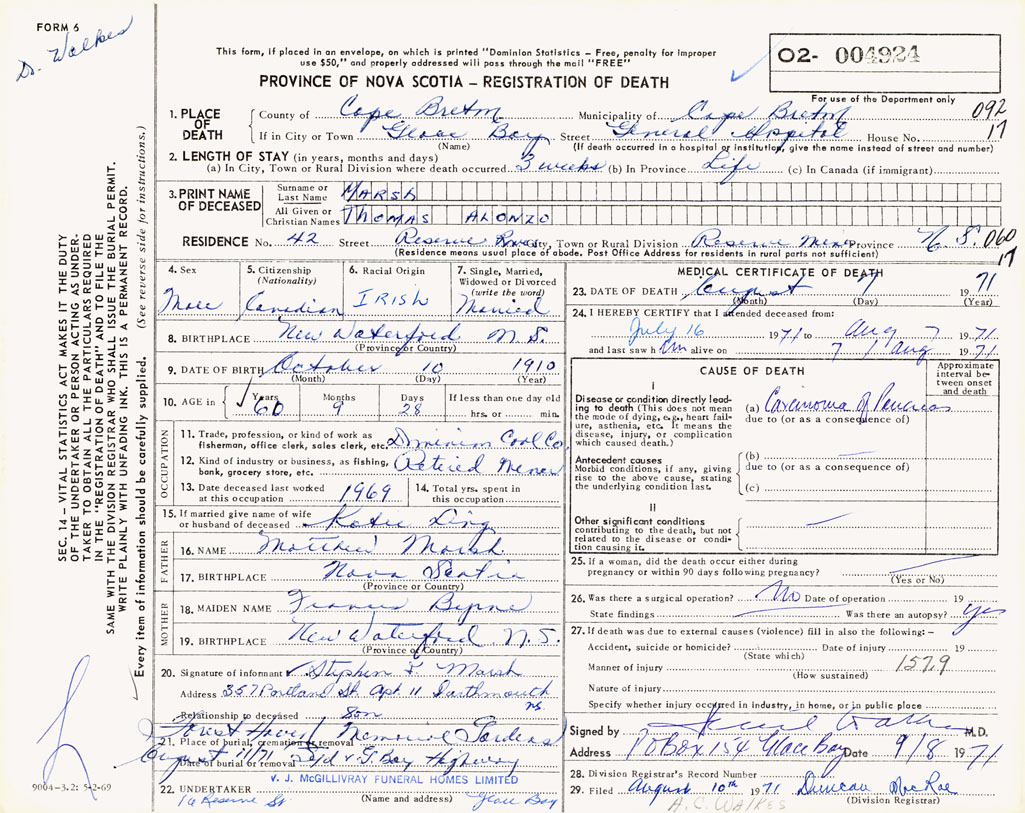 FORM 6
Dr. Walkes
This form, if placed in an envelope, on which is printed "Dominion Statistics – Free, penalty for improper
use $50," and properly addressed will pass through the mail "FREE"
PROVINCE OF NOVA SCOTIA – REGISTRATION OF DEATH
02- 004924
For use of the Department only
092
17
1. PLACE OF DEATH
County of Cape Breton Municipality of Cape Breton
If in City or Town Glace Bay Street General Hospital House No.
(Name) (If death occurred in a hospital or institution, give the name instead of street and number)
2. LENGTH OF STAY (in years, months and days)
(a) In City, Town or Rural Division where death occurred 3 weeks (b) In Province Life (c) In Canada (if immigrant)
3. PRINT NAME OF DECEASED
Surname or Last Name MARSH
All Given or Christian Names THOMAS ALONZO
RESIDENCE No. 42 Street Reserve City, Town or Rural Division Reserve Mines Province N. S. 060
(Residence means usual place of abode. Post Office Address for residents in rural parts not sufficient) 17
4. Sex
Male
5. Citizenship
(Nationality)
Canadian
6. Racial Origin
IRISH
7. Single, Married,
Widowed or Divorced
(write the word)
Married
8. BIRTHPLACE New Waterford N. S.
(Province or Country)
9. DATE OF BIRTH October 10 1910
(Month) (Day) (Year)
10. AGE in
Years Months Days If less than one day old
60 9 28 hrs. or min.
OCCUPATION
11. Trade, profession, or kind of work as
fisherman, office clerk, sales clerk, etc. Dominion Coal Co
12. Kind of industry or business, as fishing,
bank, grocery store, etc. Retired Miner
13. Date deceased last worked
at this occupation 1969
14. Total yrs. spent in
this occupation
15. If married give name of wife
or husband of deceased Katie Ling
FATHER
16. NAME Matthew Marsh
17. BIRTHPLACE Nova Scotia
(Province or Country)
MOTHER
18. MAIDEN NAME Frances Byrne
19. BIRTHPLACE New Waterford N. S.
(Province or Country)
20. Signature of informant Stephen F Marsh
Address 357 Portland St. Apt 11 Dartmouth
NS
Relationship to deceased Son
Forest Haven Memorial Gardens
21. Place of burial, cremation or removal
August 11/71 Syd v. G. Bay Highway
Date of burial or removal
V. J. McGILLIVRAY FUNERAL HOMES LIMITED
22. UNDERTAKER (Name and address)
16 Reserve St Glace Bay
MEDICAL CERTIFICATE OF DEATH
23. DATE OF DEATH August 7 1971
(Month) (Day) (Year)
24. I HEREBY CERTIFY that I attended deceased from:
July 16 1971 to Aug 7 1971
and last saw him alive on 7 / Aug 1971
CAUSE OF DEATH
Approximate
interval be-
tween onset
and death
I
Disease or condition directly lead-
ing to death (This does not mean
the mode of dying, e.g., heart fail-
ure, asthenia, etc. It means the
disease, injury, or complication
which caused death.)
(a) Carcinoma of Pancreas
due to (or as a consequence of)
Antecedent causes
Morbid conditions, if any, giving
rise to the above cause, stating
the underlying condition last.
(b)
due to (or as a consequence of)
(c)
II
Other significant conditions
contributing to the death, but not
related to the disease or condi-
tion causing it.
25. If a woman, did the death occur either during
pregnancy or within 90 days following pregnancy?
(Yes or No)
26. Was there a surgical operation? No Date of operation 19
State findings Was there an autopsy? Yes
27. If death was due to external causes (violence) fill in also the following:–
Accident, suicide or homicide? Date of injury 19
(State which)
157.9
Manner of injury
(How sustained)
Nature of injury
Specify whether injury occurred in industry, in home, or in public place
Signed by M.D.
Address P.O Box 154 Glace Bay Date 9/8 1971
28. Division Registrar's Record Number
29. Filed August 10th 1971 Duncan MacRae
(Division Registrar)
A. C. WALKES
SEC. 14 – VITAL STATISTICS ACT MAKES IT THE DUTY
OF THE UNDERTAKER OR PERSON ACTING AS UNDER-
TAKER TO OBTAIN ALL THE PARTICULARS REQUIRED
IN THE "REGISTRATION OF DEATH" AND TO FILE THE
SAME WITH THE DIVISION REGISTRAR WHO SHALL ISSUE THE BURIAL PERMIT.
WRITE PLAINLY WITH UNFADING INK. THIS IS A PERMANENT RECORD.
Every item of information should be carefully supplied. (See reverse side for instructions.)
9004-3.2: 5-2-69